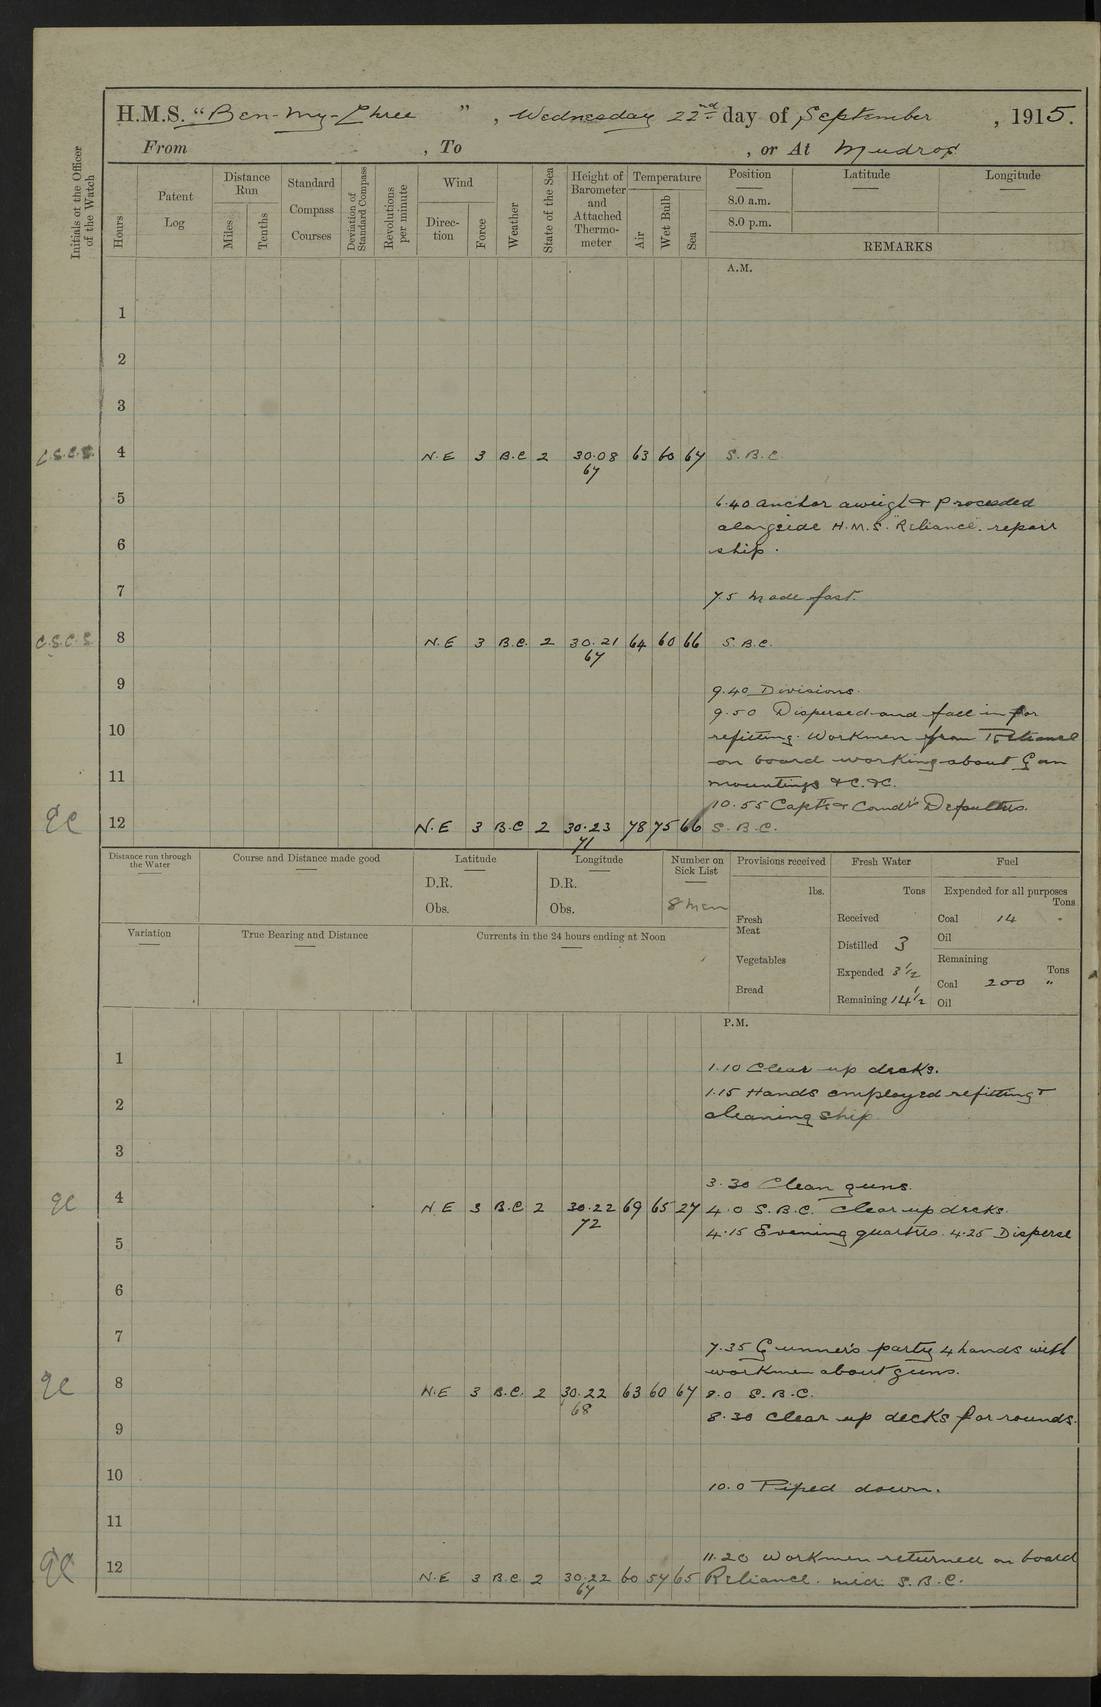 H.M.S. "Ben-my-Chree", Wednesday 22nd day of September, 1915.
From , To , or At Mudros
Initials of the Officer of the Watch
Hours
Patent Log
Distance Run
Miles
Tenths
Standard Compass Courses
Deviation of Standard Compass
Revolutions per minute
Wind
Direction
Force
Weather
State of the Sea
Height of Barometer and Attached Thermometer
Temperature
Air
Wet Bulb
Sea
Position
8.0 a.m.
8.0 p.m.
Latitude
Longitude
REMARKS
A.M.
1
2
3
C.S.C.S. 4 N.E 3 B.C 2 30.08 63 60 67 S.B.C.
67
5 6.40 Anchor aweigh & proceeded
alongside H.M.S. "Reliance" repair
6 ship.
7 7.5 Made fast.
C.S.C.S 8 N.E 3 B.C. 2 30.21 64 60 66 S.B.C.
67
9 9.40 Divisions.
9.50 Dispersed and fall in for
10 refitting. Workmen from Reliance
on board working about Gun
11 mountings &c. &c.
10.55 Capt's & Comdr's Defaulters.
12 N.E 3 B.C 2 30.23 78 75 66 S.B.C.
71
Distance run through the Water
Course and Distance made good
Latitude
D.R.
Obs.
Longitude
D.R.
Obs.
Number on Sick List
8 men
Provisions received
lbs.
Fresh Meat
Vegetables
Bread
Fresh Water
Tons
Received
Distilled 3
Expended 3½
Remaining 14½
Fuel
Expended for all purposes
Tons
Coal 14 "
Oil
Remaining
Tons
Coal 200 "
Oil
Variation
True Bearing and Distance
Currents in the 24 hours ending at Noon
P.M.
1 1.10 Clear up decks.
1.15 Hands employed refitting &
2 cleaning ship
3
3.30 Clean guns.
4 N.E 3 B.C 2 30.22 69 65 27 4.0 S.B.C. Clear up decks.
72
5 4.15 Evening quarters. 4.25 Disperse
6
7 7.35 Gunner's party 4 hands with
workmen about guns.
8 N.E 3 B.C. 2 30.22 63 60 67 8.0 S.B.C.
68
8.30 Clear up decks for rounds.
9
10 10.0 Piped down.
11
11.20 Workmen returned on board
12 N.E 3 B.C. 2 30.22 60 57 65 Reliance. mid. S.B.C.
67